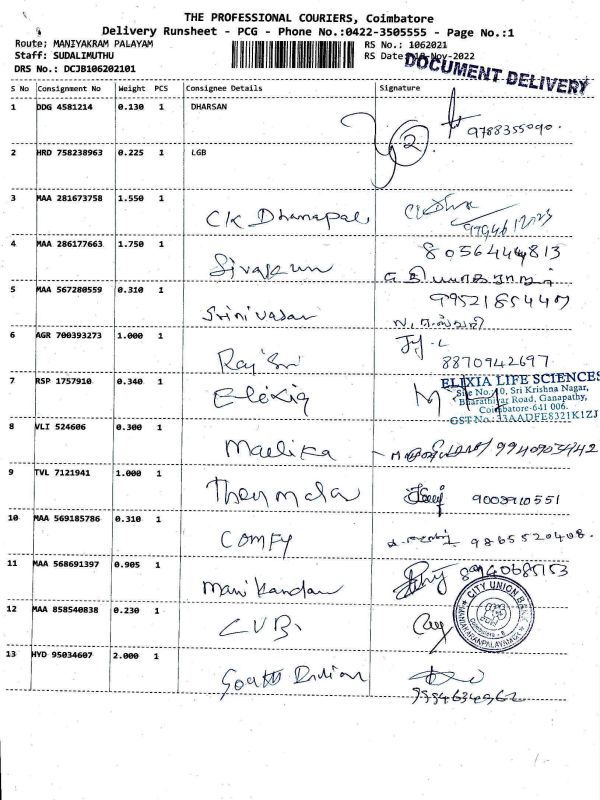 THE PROFESSIONAL COURIERS, Coimbatore
Delivery Runsheet - PCG - Phone No.:0422-3505555 - Page No.:1
Route: MANIYAKRAM PALAYAM RS No.: 1062021
Staff: SUDALIMUTHU RS Date: 18-Nov-2022
DRS No.: DCJB106202101
DOCUMENT DELIVERY
S No Consignment No Weight PCS Consignee Details Signature
1 DDG 4581214 0.130 1 DHARSAN
9788355090.
2
2 HRD 758238963 0.225 1 LGB
3 MAA 281673758 1.550 1
CK Dhanapal
4 MAA 286177663 1.750 1
Sivakum
5 MAA 567280559 0.310 1 9952185447
Srinivasan
6 AGR 700393273 1.000 1
Rajsri 8870942697.
7 RSP 1757910 0.340 1
Elexia
ELIXIA LIFE SCIENCES
Site No.10, Sri Krishna Nagar,
Bharathiyar Road, Ganapathy,
Coimbatore-641 006.
GST No.:33AADFE8321K1ZJ
8 VLI 524606 0.300 1
Mallika
9 TVL 7121941 1.000 1
9003910551
10 MAA 569185786 0.310 1
COMFY 9865520408.
11 MAA 568691397 0.905 1
Manikandan
12 MAA 858540838 0.230 1
CUB
CITY UNION BANK
MANIAKARANPALAYAM
Coimbatore - 6
13 HYD 95034607 2.000 1
South Indian